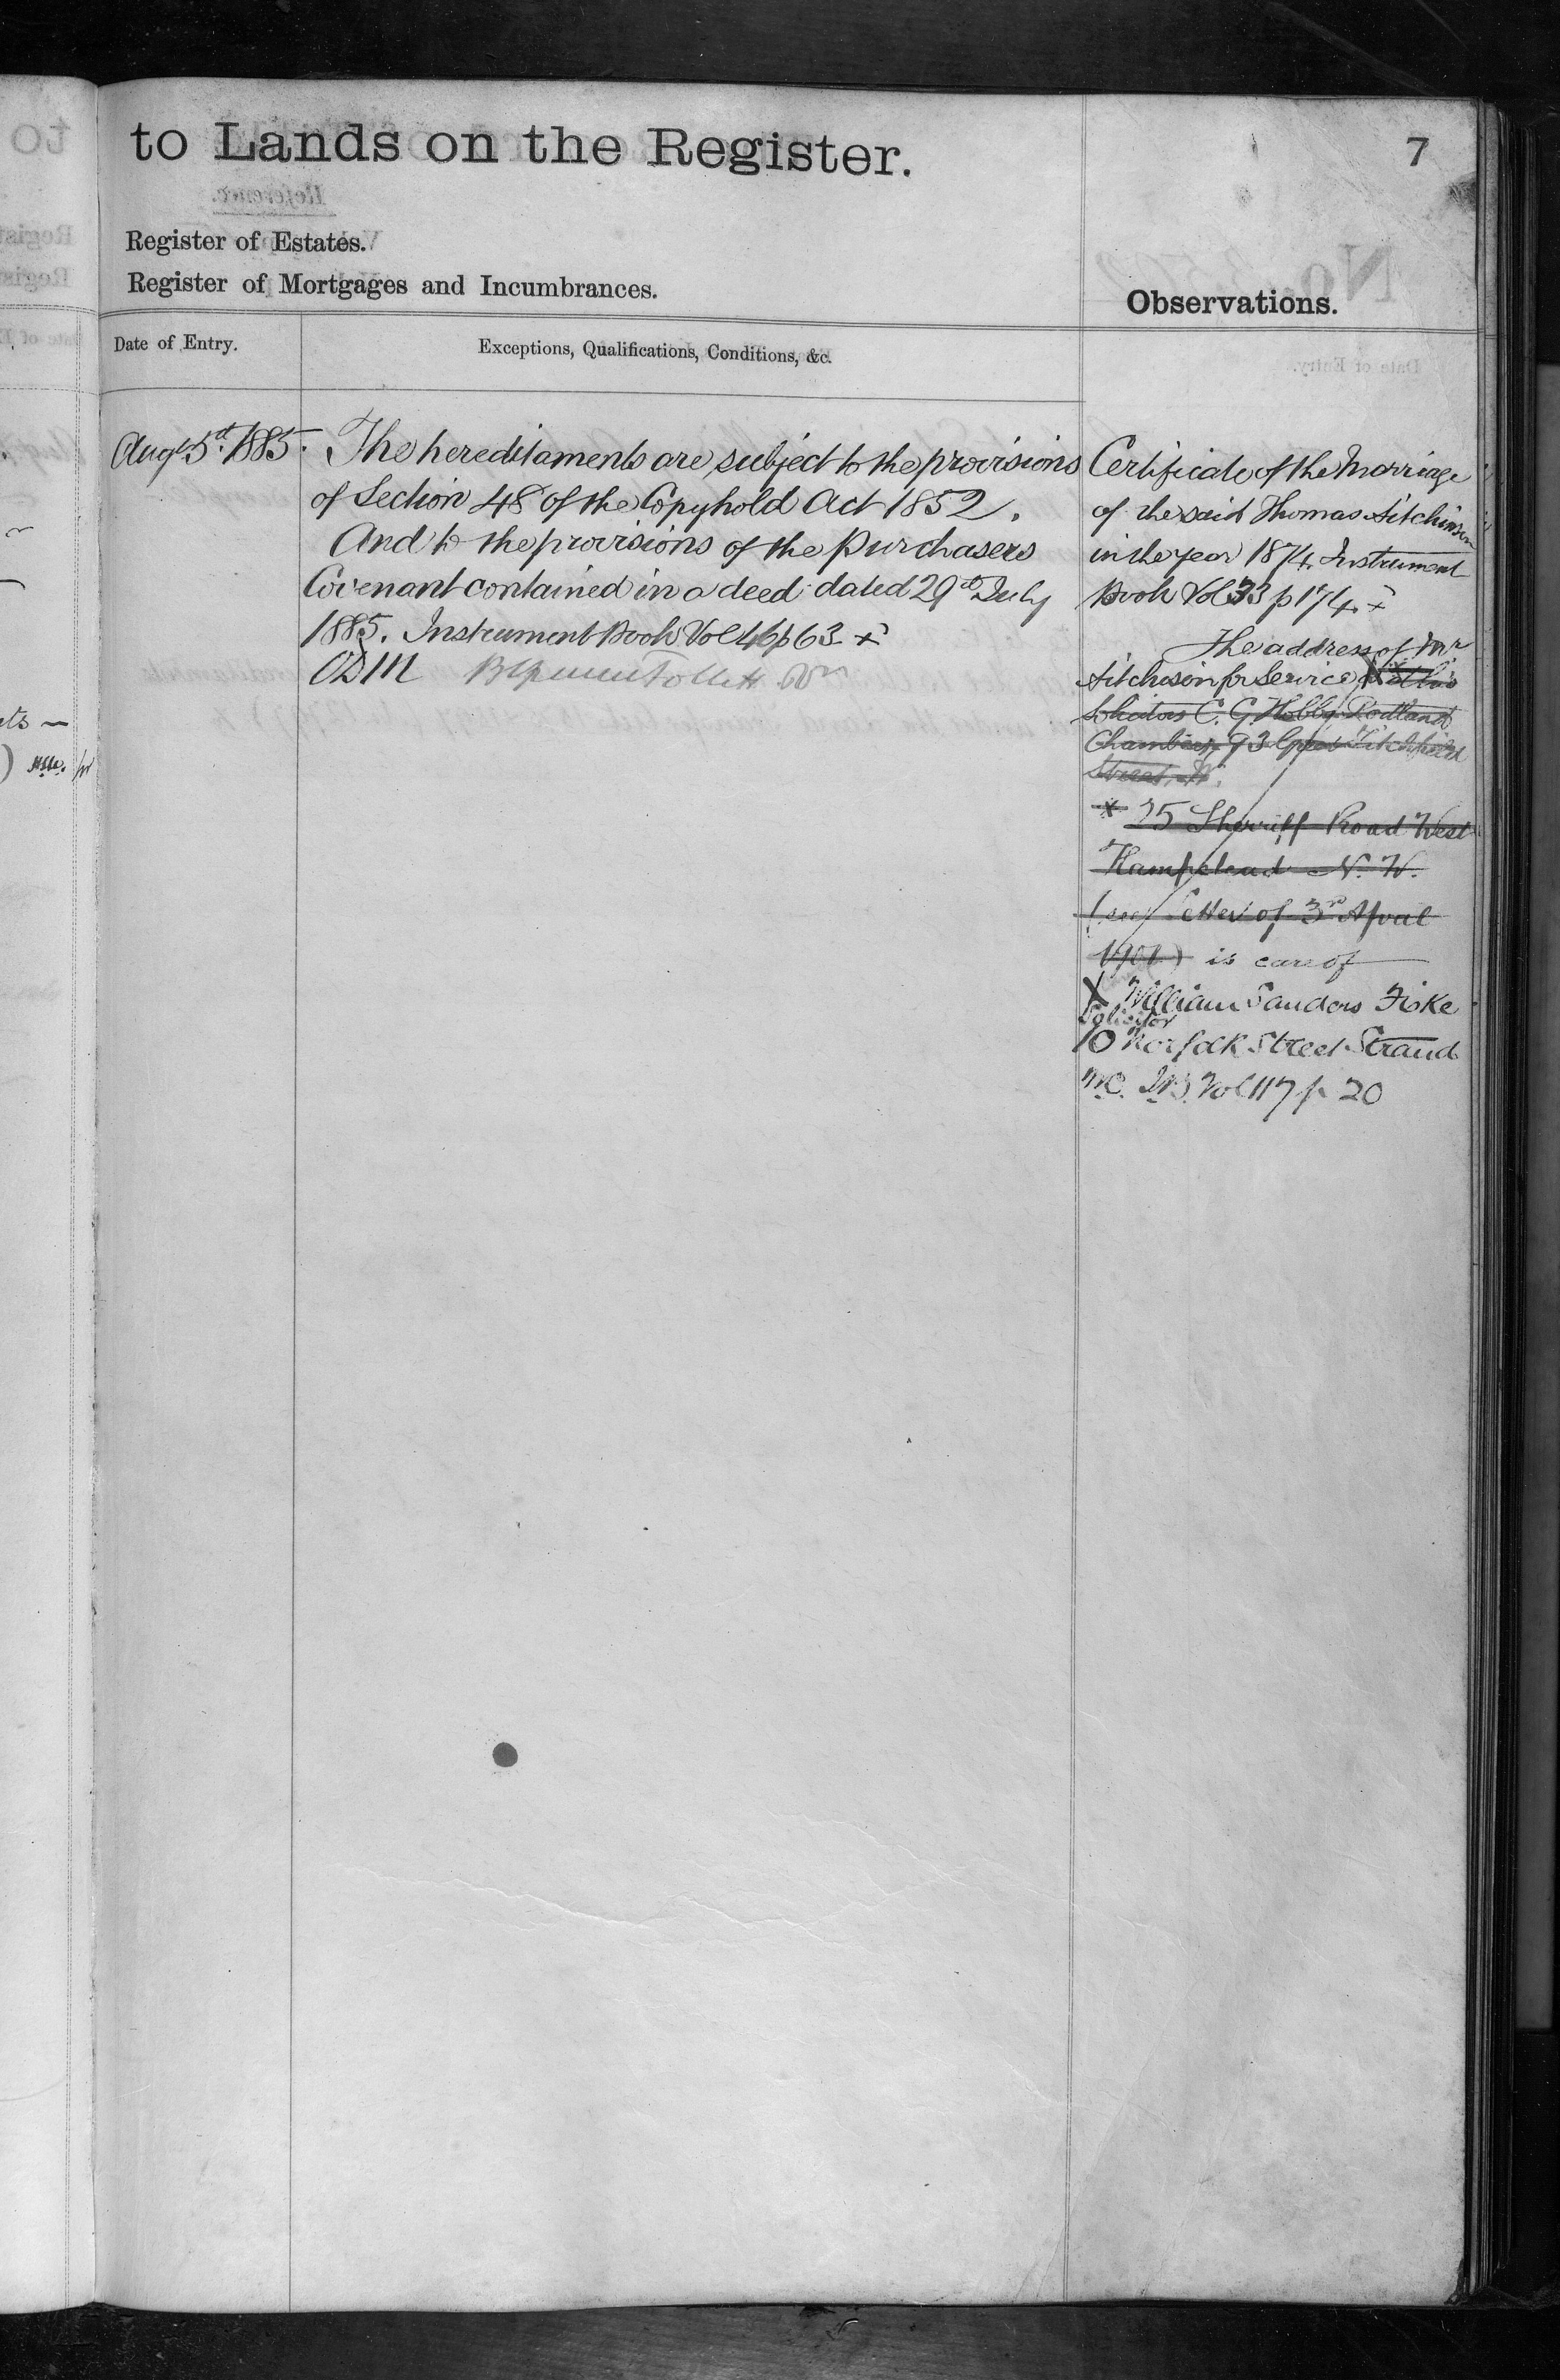 to Lands on the Register.
7
Register of Estates.
Register of Mortgages and Incumbrances.
Observations.
Date of Entry.
Exceptions, Qualifications, Conditions, &c.
Augt 5th 1885.
The hereditaments are subject to the provisions
of Section 48 of the Copyhold Act 1852.
And to the provisions of the Purchasers
Covenant contained in a deed dated 29th July
1885. Instrument Book Vol 46 p 63
Certificate of the Marriage
of the said Thomas Aitchison
in the year 1874. Instrument
Book Vol 33 p 174.
The address of Mr
Aitchison for Service X
Solicitors C. G. Hobbs Portland
Chambers 93 Great Titchfield
Street, W.
25 Sherriff Road West
Hampstead N. W.
(see letter of 3rd April
1901) is care of
X William Sanders Fiske
Solicitor
10 Norfolk Street Strand
W.C. Vol 117 p 20